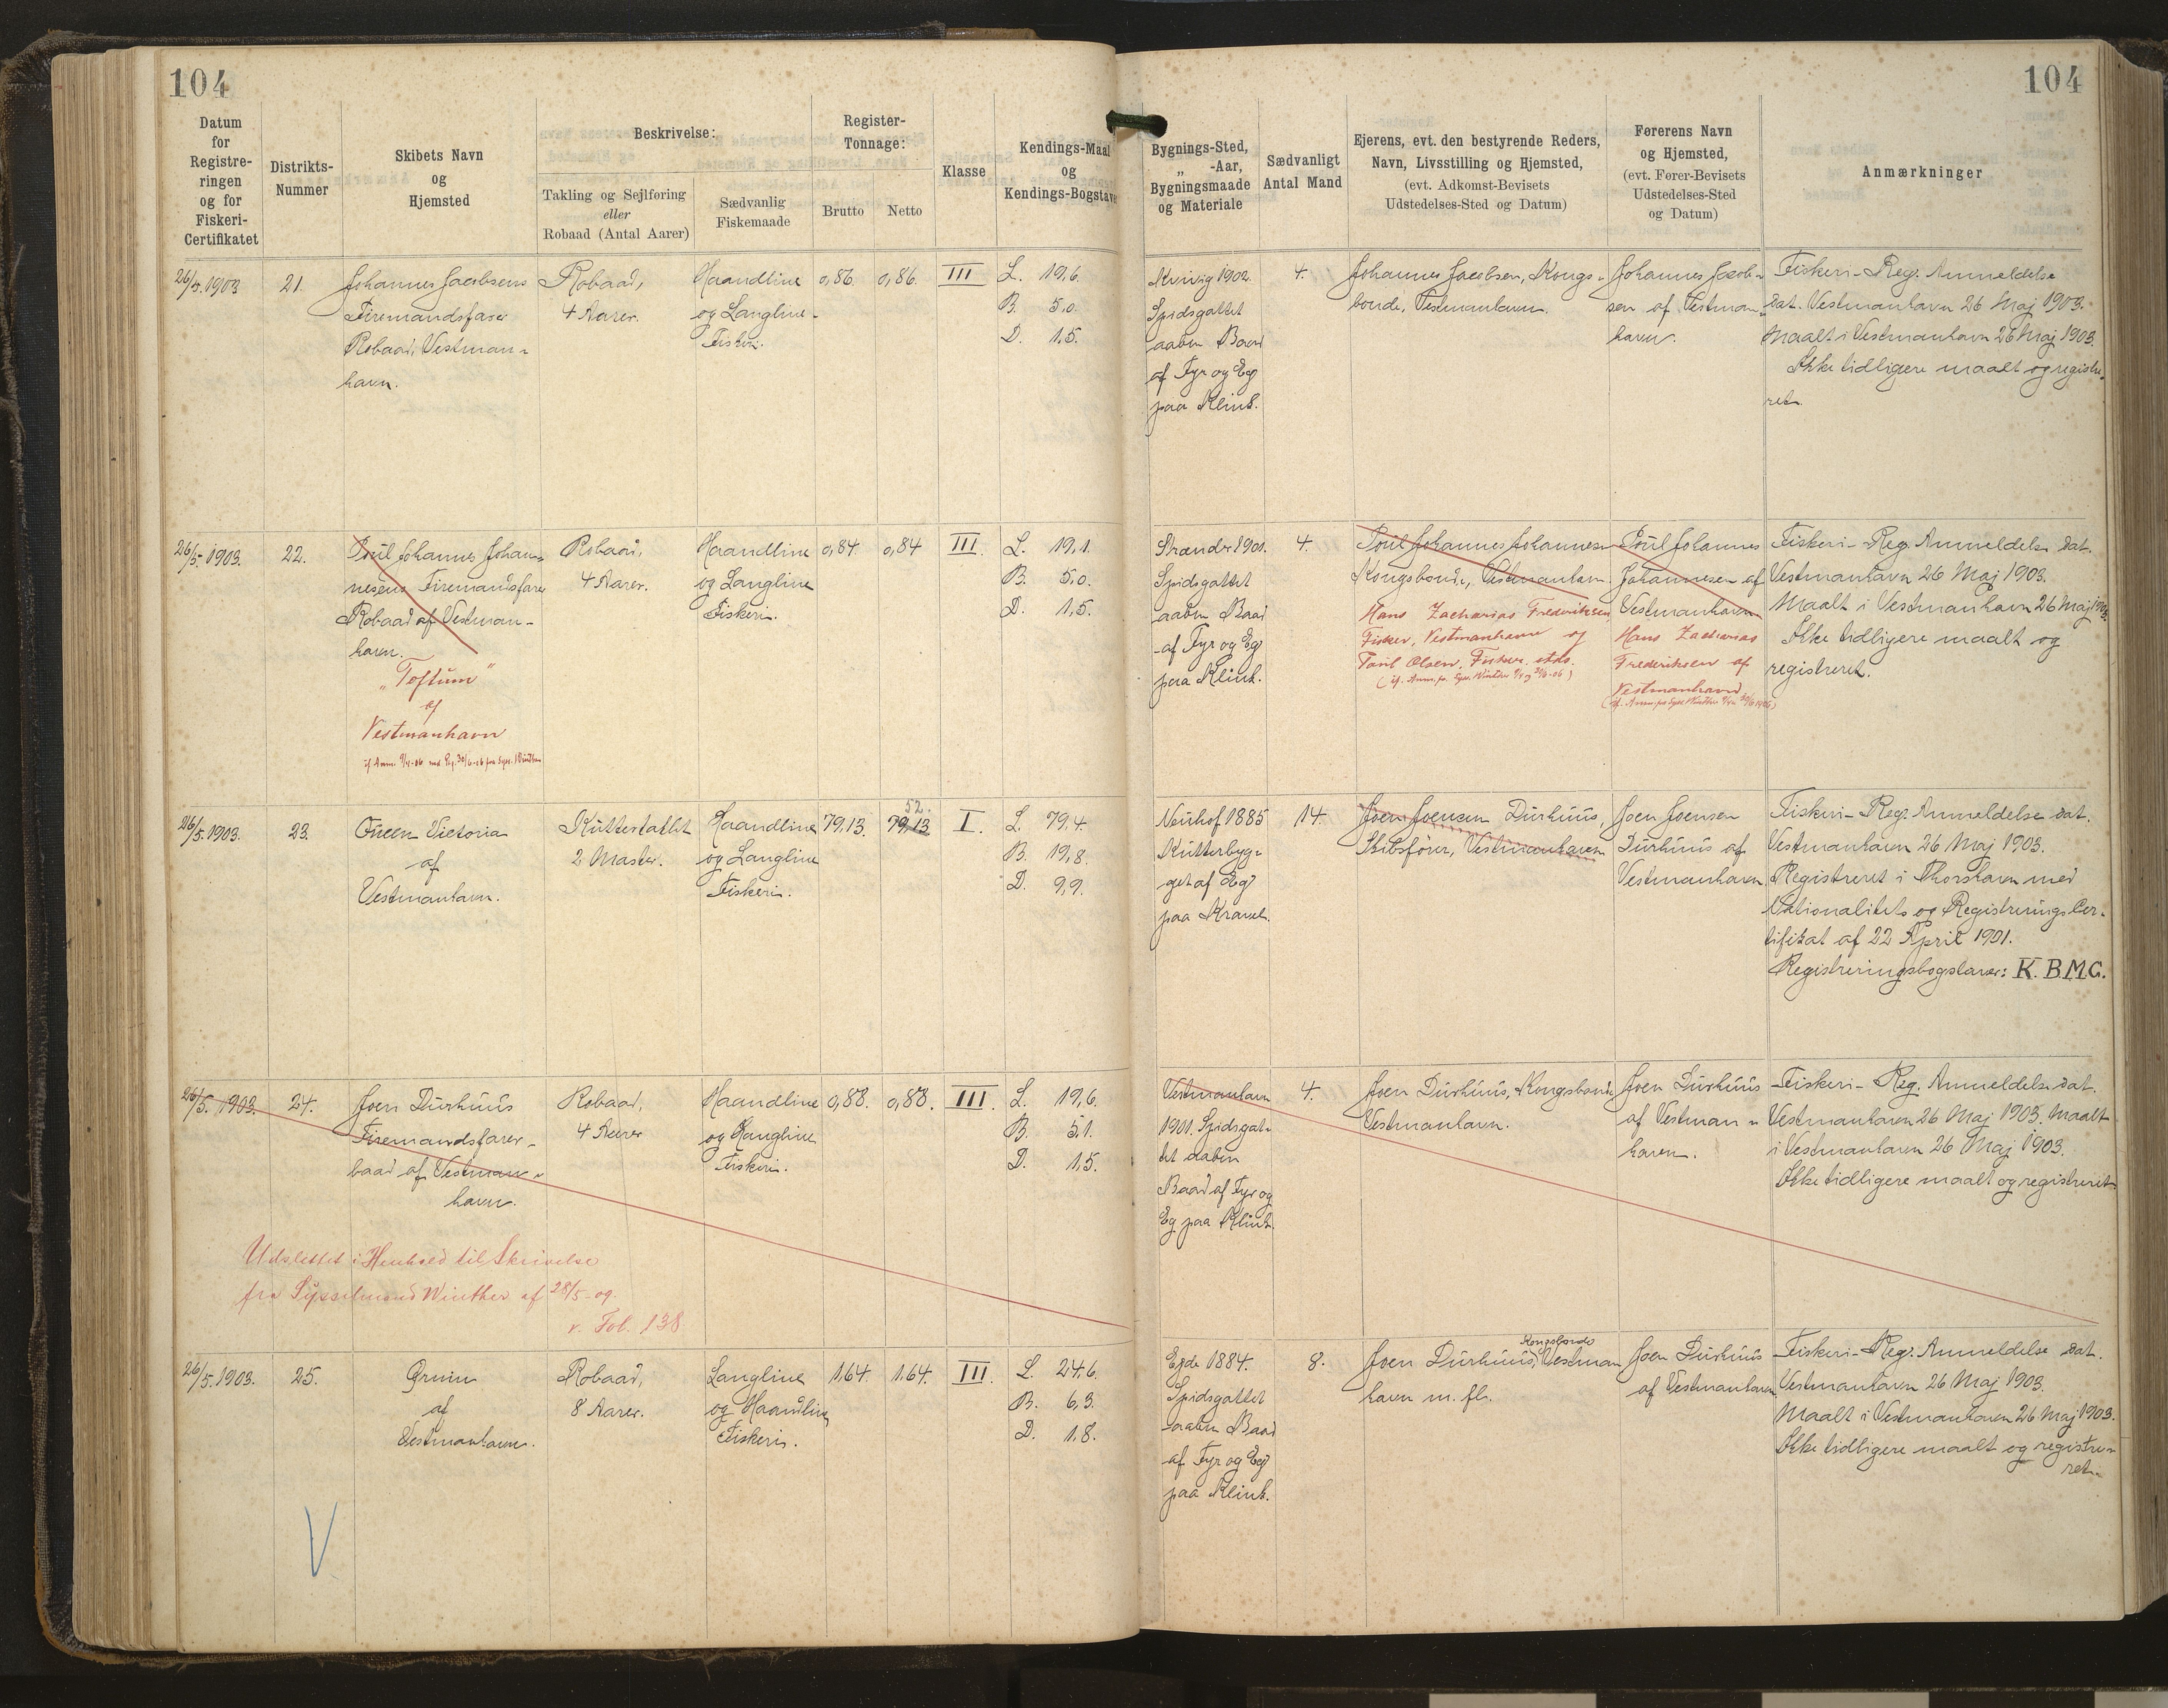 104
104
Datum
for
Registre-
ringen
og for
Fiskeri-
Certifikatet
Distrikts-
Nummer
Skibets Navn
og
Hjemsted
Beskrivelse:
Takling og Sejlføring
eller
Robaad (Antal Aarer)
Sædvanlig
Fiskemaade
Register-
Tonnage:
Brutto
Netto
Klasse
Kendings-Maal
og
Kendings-Bogstave
Bygnings-Sted,
„ -Aar,
Bygningsmaade
og Materiale
Sædvanligt
Antal Mand
Ejerens, evt. den bestyrende Reders,
Navn, Livsstilling og Hjemsted,
(evt. Adkomst-Bevisets
Udstedelses-Sted og Datum)
Førerens Navn
og Hjemsted,
(evt. Fører-Bevisets
Udstedelses-Sted
og Datum)
Anmærkninger
26/5. 1903
21.
Johannes Jacobsens
Firemandsfarer
Robaad, Vestman-
havn.
Robaad,
4 Aarer.
Haandline
og Langline-
Fiskeri.
0,86.
0,86.
III
L. 19,6.
B. 5,0.
D. 1,5.
Kvivig 1902.
Spidsgattet
aaben Baad
af Fyr og Eg
paa Klink.
4.
Johannes Jacobsen, Kongs-
bonde, Vestmanhavn.
Johannes Jacob-
sen af Vestman-
havn.
Fiskeri-Reg. Anmeldelse
dat. Vestmanhavn 26 Maj 1903.
Maalt i Vestmanhavn 26 Maj 1903.
Ikke tidligere maalt og registre-
ret.
26/5. 1903.
22.
Poul Johannes Johan-
nesens Firemandsfarer
Robaad af Vestman-
havn.
„Toftum“
af
Vestmanhavn
Robaad,
4 Aarer.
Haandline
og Langline
Fiskeri.
0,84.
0,84
III.
L. 19,1.
B. 5,0.
D. 1,5.
Strender 1901.
Spidsgattet
aaben Baad
af Fyr og Eg
paa Klink.
4.
Poul Johannes Johannesen
Kongsbonde, Vestmanhavn.
Hans Zacharias Frederiksen
Fisker, Vestmanhavn og
Poul Olsen, Fisker, stds.
Poul Johannes
Johannesen af
Vestmanhavn
Hans Zacharias
Frederiksen af
Vestmanhavn
Fiskeri-Reg. Anmeldelse dat.
Vestmanhavn 26 Maj 1903.
Maalt i Vestmanhavn 26 Maj 1903.
Ikke tidligere maalt og
registreret.
26/5. 1903.
23.
Queen Victoria
af
Vestmanhavn.
Kuttertaklet
2 Master.
Haandline
og Langline
Fiskeri.
79,13.
52.
79,13
I.
L. 79,4.
B. 19,8.
D. 9,9.
Neuhof 1885
Kutterbyg-
get af Eg
paa Kravel.
14.
Joen Joensen Durhuus,
Skibsfører, Vestmanhavn
Joen Joensen
Durhuus af
Vestmanhavn
Fiskeri-Reg. Anmeldelse dat.
Vestmanhavn 26 Maj 1903.
Registreret i Thorshavn med
Nationalitets og Registrerings Cer-
tifikat af 22 April 1901.
Registreringsbogstaver: K. B. M. G.
26/5. 1903.
24.
Joen Durhuus
Firemandsfarer-
baad af Vestman-
havn.
Robaad,
4 Aarer
Haandline
og Langline
Fiskeri.
0,88.
0,88.
III.
L. 19,6.
B. 5,1.
D. 1,5.
Vestmanhavn
1901. Spidsgat-
tet aaben
Baad af Fyr og
Eg paa Klink.
4.
Joen Durhuus, Kongsbonde
Vestmanhavn.
Joen Durhuus
af Vestman-
havn.
Fiskeri-Reg. Anmeldelse dat.
Vestmanhavn 26 Maj 1903. Maalt
i Vestmanhavn 26 Maj 1903.
Ikke tidligere maalt og registreret
Udslettet i Henhold til Skrivelse
fra Sysselmand Winther af 28/5-09.
v. Fol. 138
26/5. 1903.
25.
af
Vestmanhavn.
Robaad,
8 Aarer.
Langline
og Haandline
Fiskeri.
1,64.
1,64.
III.
L. 24,6.
B. 6,3.
D. 1,8.
Ejde 1884.
Spidsgattet
aaben Baad
af Fyr og Eg
paa Klink.
8.
Kongsbonde
Joen Durhuus, Vestman
havn m. fl.
Joen Durhuus
af Vestmanhavn
Fiskeri-Reg. Anmeldelse dat.
Vestmanhavn 26 Maj 1903.
Maalt i Vestmanhavn 26 Maj 1903.
Ikke tidligere maalt og registre-
ret.
V